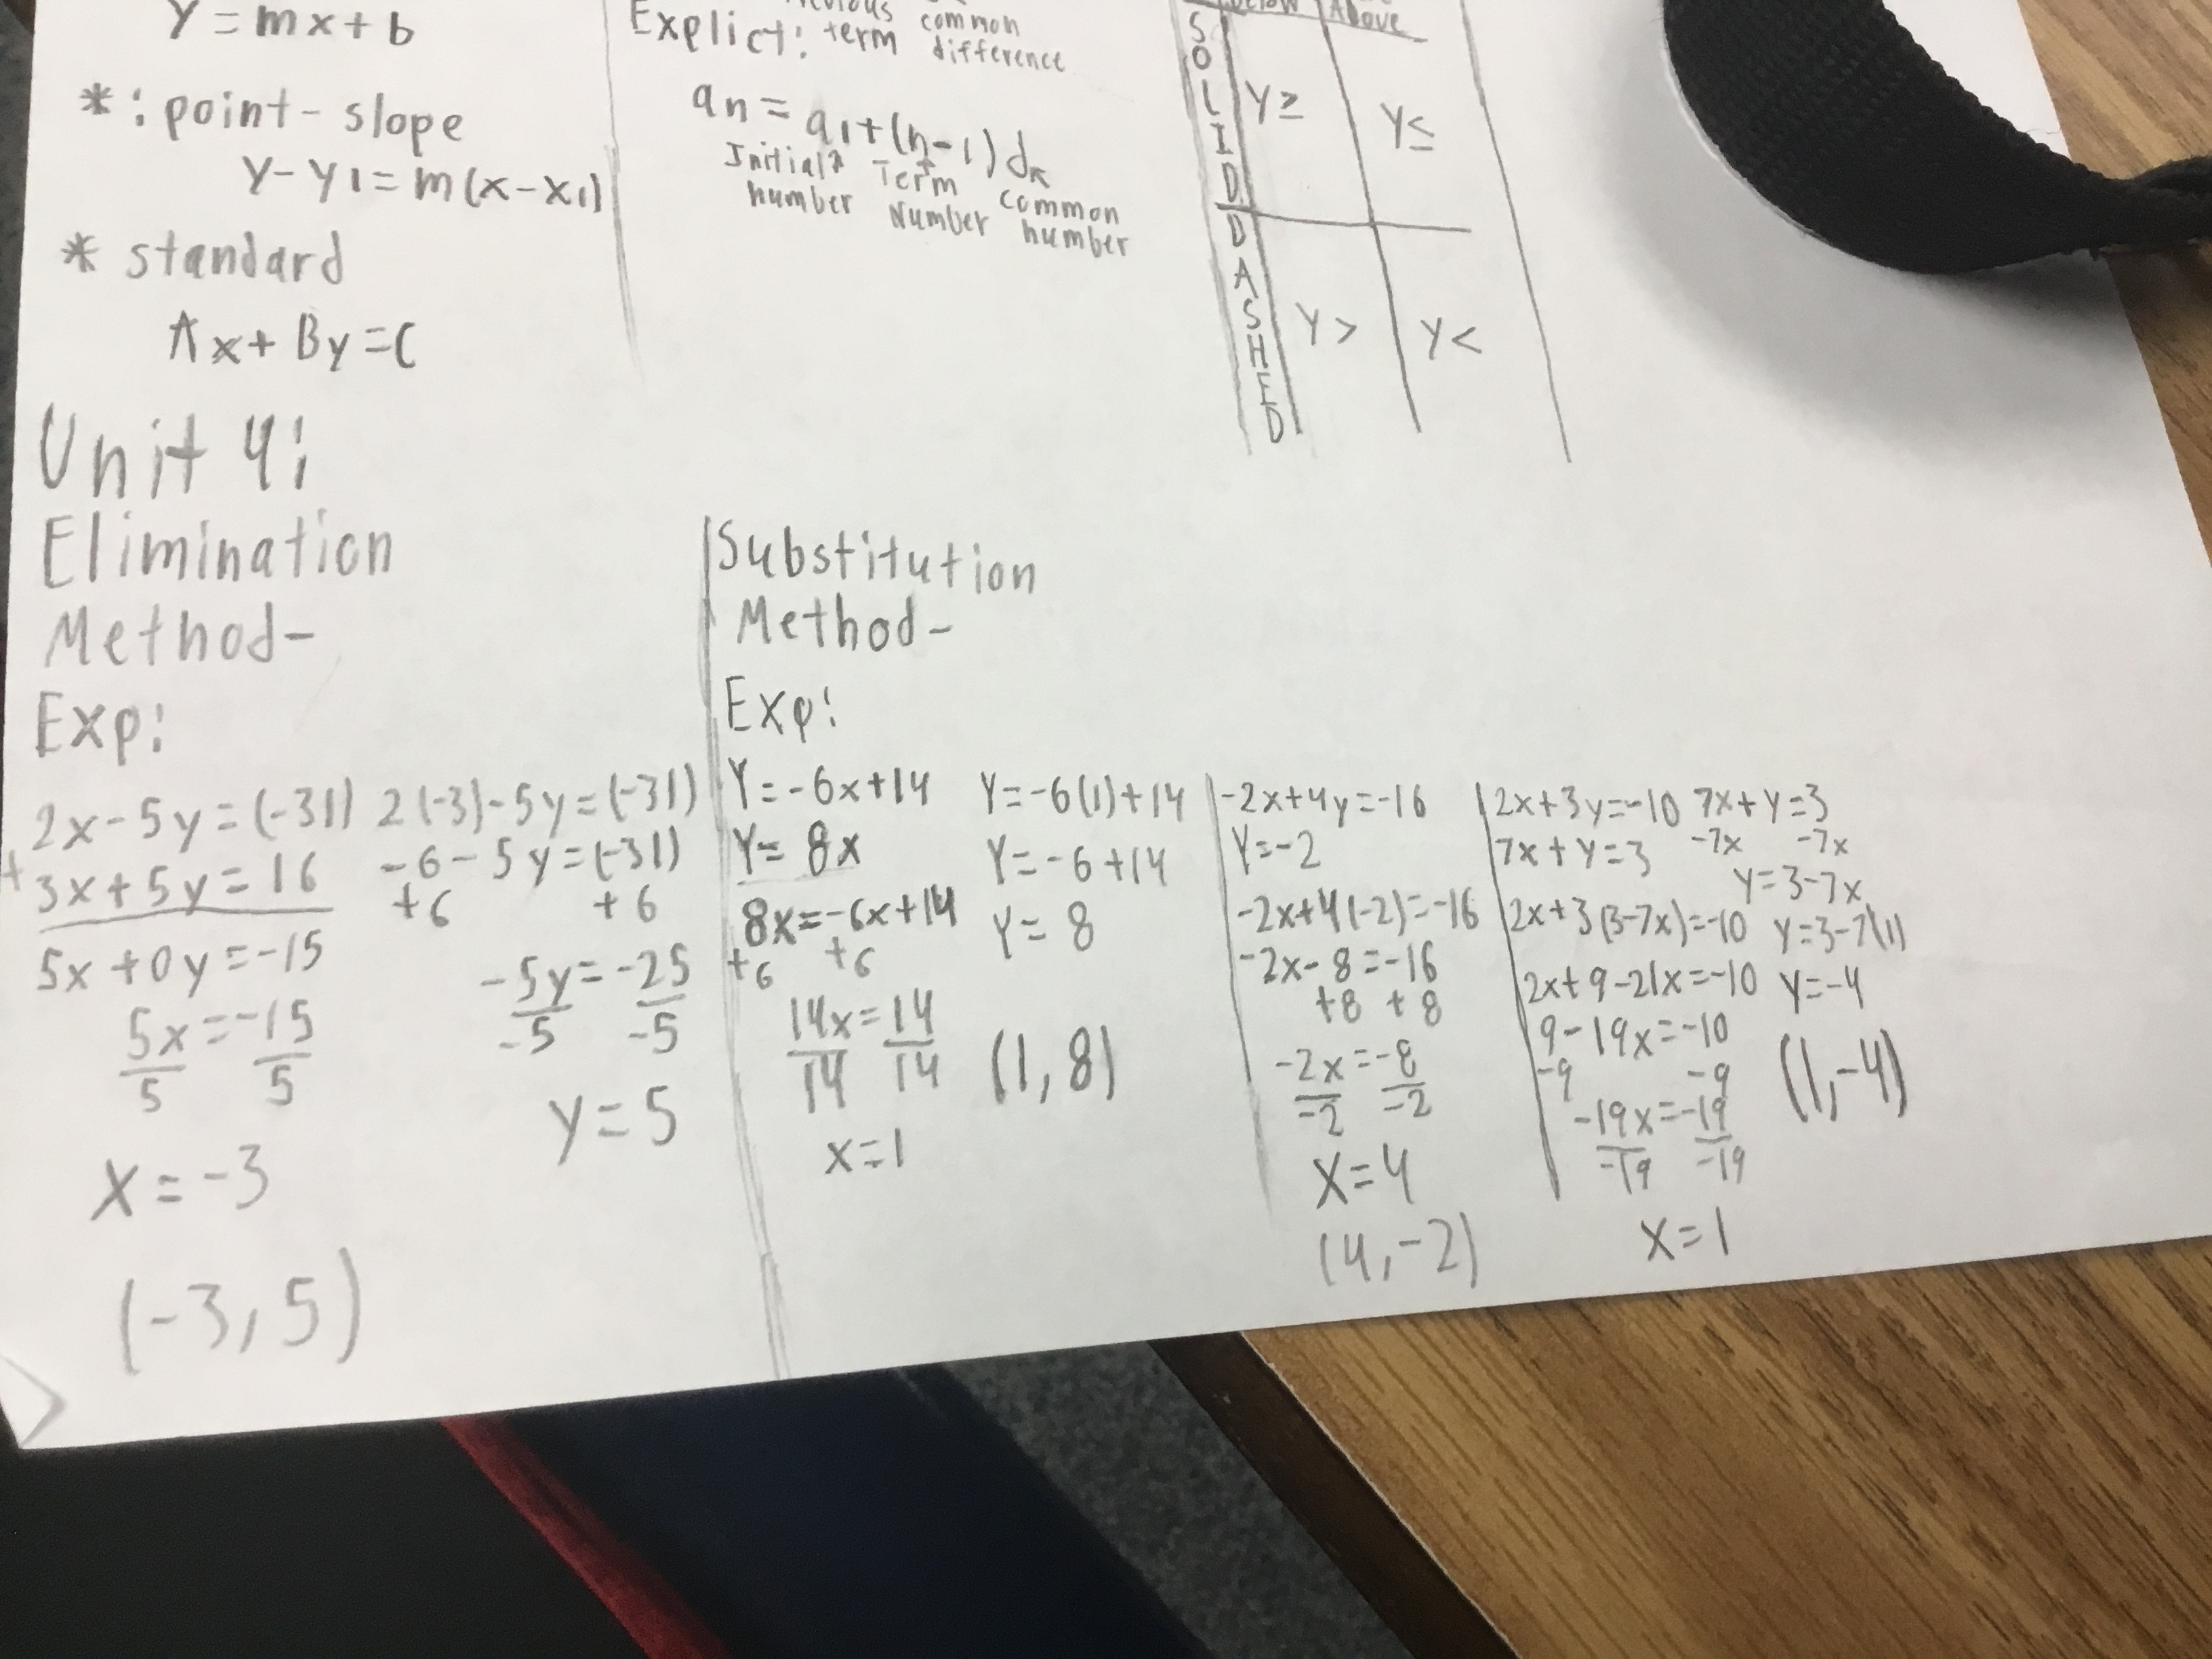 Y = mx + b
* : point - slope
y - y1 = m(x - x1)
* standard
Ax + By = C
common
Explict: term difference
an = a1 + (n - 1) d
Initial Term common
number Number number
Below Above
SOLID
Y ≥ Y ≤
DASHED
Y > Y <
Unit 4:
Elimination
Method-
Exp:
2x - 5y = (-31)
+ 3x + 5y = 16
5x + 0y = -15
5x = -15
5 5
x = -3
(-3, 5)
2(-3) - 5y = (-31)
-6 - 5y = (-31)
+6 +6
-5y = -25
-5 -5
y = 5
Substitution
Method-
Exp:
Y = -6x + 14
Y = 8x
8x = -6x + 14
+6 +6
14x = 14
14 14
x = 1
Y = -6(1) + 14
Y = -6 + 14
Y = 8
(1, 8)
-2x + 4y = -16
Y = -2
-2x + 4(-2) = -16
-2x - 8 = -16
+8 +8
-2x = -8
-2 -2
X = 4
(4, -2)
2x + 3y = -10
7x + y = 3
2x + 3(3-7x) = -10
2x + 9 - 21x = -10
9 - 19x = -10
-9 -9
-19x = -19
-19 -19
x = 1
7x + y = 3
-7x -7x
y = 3 - 7x
y = 3 - 7(1)
y = -4
(1, -4)